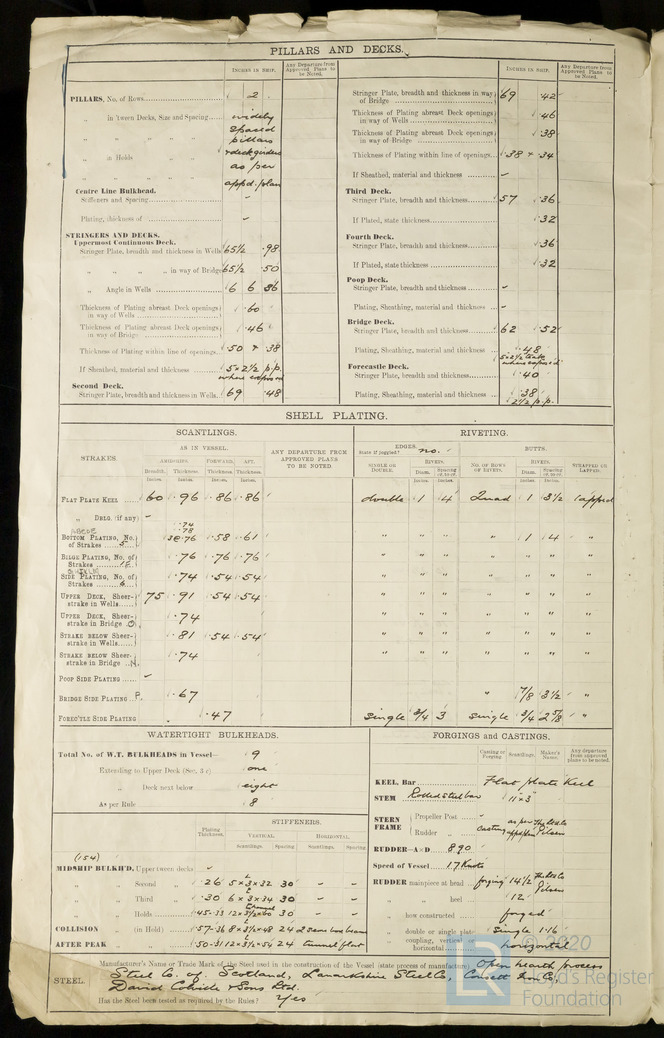 PILLARS AND DECKS.
INCHES IN SHIP.
Any Departure from Approved Plans to be Noted.
PILLARS, No. of Rows 2
„ in 'tween Decks, Size and Spacing widely
spaced
pillars
„ in Holds „ „ & deck girders
as per
appd. plan
Centre Line Bulkhead.
Stiffeners and Spacing -
Plating, thickness of -
STRINGERS AND DECKS.
Uppermost Continuous Deck.
Stringer Plate, breadth and thickness in Wells 65½ .98
„ „ „ „ in way of Bridge 65½ .50
„ Angle in Wells 6 6 86
Thickness of Plating abreast Deck openings in way of Wells .60
Thickness of Plating abreast Deck openings in way of Bridge .46
Thickness of Plating within line of openings .50 & .38
If Sheathed, material and thickness 5 x 2½ p.p.
where exposed
Second Deck.
Stringer Plate, breadth and thickness in Wells 69 .48
INCHES IN SHIP.
Any Departure from Approved Plans to be Noted.
Stringer Plate, breadth and thickness in way of Bridge 69 .42
Thickness of Plating abreast Deck openings in way of Wells .46
Thickness of Plating abreast Deck openings in way of Bridge .38
Thickness of Plating within line of openings .38 & .34
If Sheathed, material and thickness -
Third Deck.
Stringer Plate, breadth and thickness 57 .36
If Plated, state thickness .32
Fourth Deck.
Stringer Plate, breadth and thickness .36
If Plated, state thickness .32
Poop Deck.
Stringer Plate, breadth and thickness -
Plating, Sheathing, material and thickness -
Bridge Deck.
Stringer Plate, breadth and thickness 62 .52
Plating, Sheathing, material and thickness .48
5 x 2½ teak
where exposed
Forecastle Deck.
Stringer Plate, breadth and thickness .40
Plating, Sheathing, material and thickness .38
2½ p.p.
SHELL PLATING.
SCANTLINGS.
RIVETING.
STRAKES.
AS IN VESSEL.
ANY DEPARTURE FROM APPROVED PLANS TO BE NOTED.
EDGES.
State if joggled? no.
BUTTS.
AMIDSHIPS. FORWARD. AFT.
Breadth. Thickness Thickness. Thickness.
Inches. Inches. Inches. Inches.
SINGLE OR DOUBLE.
RIVETS.
Diam. Spacing
NO. OF ROWS OF RIVETS.
RIVETS.
Diam. Spacing
STRAPPED OR LAPPED.
FLAT PLATE KEEL 60 .96 .86 .86 double 1 4 Quad 1 3½ lapped
„ DBLG. (if any) -
ABCDE
BOTTOM PLATING, No. of Strakes 5 .74 .78 .76 .58 .61 „ „ „ „ 1 4 „
BILGE PLATING, No. of Strakes .76 .76 .76 „ „ „ „ „ „ „
SIDE PLATING, No. of Strakes .74 .54 .54 „ „ „ „ „ „ „
UPPER DECK, Sheerstrake in Wells 75 .91 .54 .54 „ „ „ „ „ „ „
UPPER DECK, Sheerstrake in Bridge O .74 „ „ „ „ „ „ „
STRAKE BELOW Sheerstrake in Wells .81 .54 .54 „ „ „ „ „ „ „
STRAKE BELOW Sheerstrake in Bridge N .74 „ „ „ „ „ „ „
POOP SIDE PLATING -
BRIDGE SIDE PLATING P. .67 „ 7/8 3½ „
FOREC'TLE SIDE PLATING .47 Single 3/4 3 Single 3/4 2 5/8 „
WATERTIGHT BULKHEADS.
Total No. of W.T. BULKHEADS in Vessel 9
Extending to Upper Deck (Sec. 3 c) one
„ Deck next below eight
As per Rule 8
Plating Thickness.
STIFFENERS.
VERTICAL. HORIZONTAL.
Scantlings. Spacing Scantlings. Spacing
(154)
MIDSHIP BULKH'D, Upper tween decks -
„ „ Second „ .26 5 x 3 x 32 30 - -
„ „ Third „ .30 6 x 3 x 34 30 - -
„ „ Holds .45-33 12 x 3½ x 60 30 - -
COLLISION „ (in Hold) .57-36 8 x 3½ x 48 24
AFTER PEAK „ „ .50-31 12 x 3½ x 54 24 tunnel flat
FORGINGS and CASTINGS.
Casting or Forging. Scantlings. Maker's Name. Any departure from approved plans to be noted.
KEEL, Bar Flat plate Keel
STEM Rolled steel bar 11 x 3
STERN FRAME
Propeller Post - as per The Skoda
Rudder „ Casting appd plan Pilsen
RUDDER—A×D 890
Speed of Vessel 17 Knots
RUDDER mainpiece at head forging 14½ The Skoda Co Pilsen
„ „ heel 12
„ how constructed forged
„ double or single plate Single 1.16
„ coupling, vertical or horizontal horizontal
STEEL.
Manufacturer's Name or Trade Mark of the Steel used in the construction of the Vessel (state process of manufacture) Open hearth process
Steel Co. of Scotland, Lanarkshire Steel Co, Consett Iron Co,
David Colville & Sons Ltd.
Has the Steel been tested as required by the Rules? Yes
© 2020
Lloyd's Register
Foundation